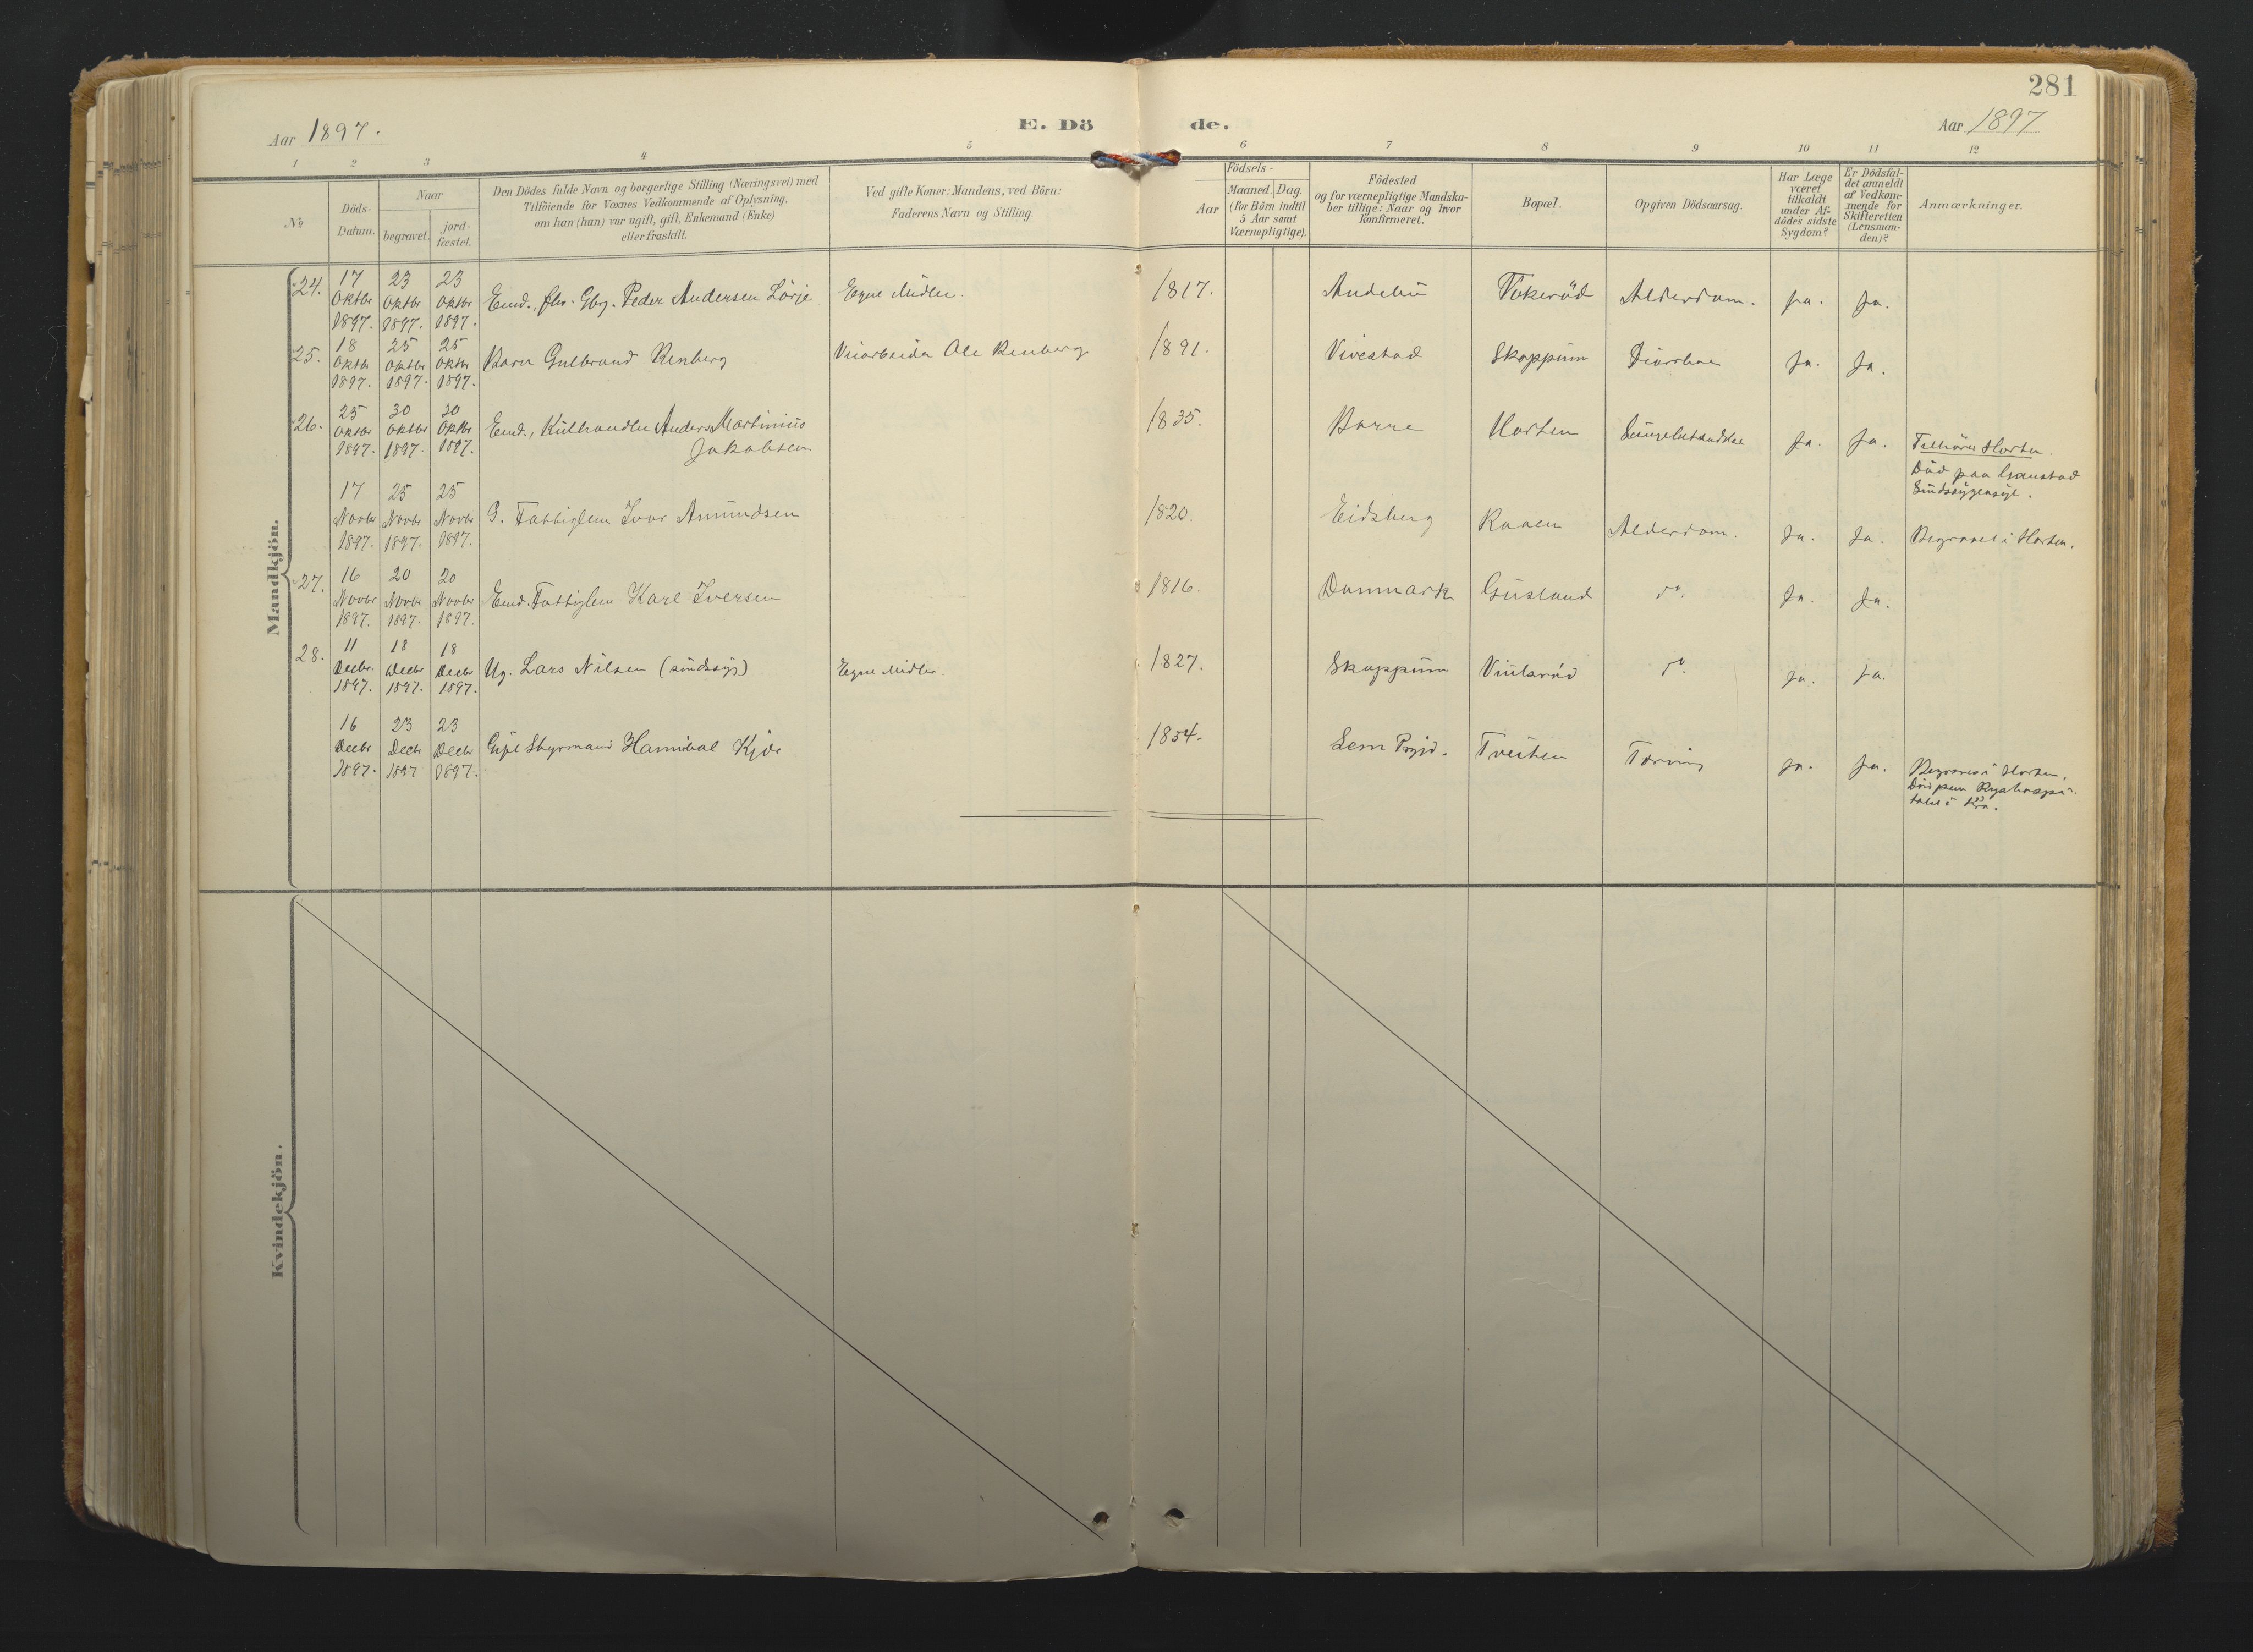 281
Aar 1897.
E. Dö de.
Aar 1897
1 2 3 4 5 6 7 8 9 10 11 12
№
Döds-
Datum.
Naar
begravet.
jord-
fæstet.
Den Dödes fulde Navn og borgerlige Stilling (Næringsvei) med
Tilföiende for Voxnes Vedkommende af Oplysning,
om han (hun) var ugift, gift, Enkemand (Enke)
eller fraskilt.
Ved gifte Koner: Mandens, ved Börn:
Faderens Navn og Stilling.
Födsels-
Aar
Maaned. Dag.
(for Börn indtil
5 Aar samt
Værnepligtige).
Födested
og for værnepligtige Mandska-
ber tillige: Naar og hvor
konfirmeret.
Bopæl.
Opgiven Dödsaarsag.
Har Læge
været
tilkaldt
under Af-
dödes sidste
Sygdom?
Er Dödsfal-
det anmeldt
af Vedkom-
mende for
Skifteretten
(Lensman-
den)?
Anmærkninger.
Mandkjön.
24. 17 Oktbr 1897. 23 Oktbr 1897. 23 Oktbr 1897. Emd., fhv. Gbrg. Peder Andersen Lörje Egne Midler. 1817. Andebu Tokeröd Alderdom. ja. ja.
25. 18 Oktbr 1897. 25 Oktbr 1897. 25 Oktbr 1897. Barn Gulbrand Renberg Veiarbeider Ole Renberg 1891. Vivestad Skoppum Diarrhae ja. ja.
26. 25 Oktbr 1897. 30 Oktbr 1897. 30 Oktbr 1897. Emd., Kulhandler Anders Martinius
Jakobsen 1835. Borre Horten Lungebetændelse ja. ja. Tilhörer Horten.
Död paa Gaustad
Sindssygeasyl.
17 Novbr 1897. 25 Novbr 1897. 25 Novbr 1897. G. Fattiglem Ivar Amundsen 1820. Eidsberg Raaen Alderdom. ja. ja. Begravet i Horten.
27. 16 Novbr 1897. 20 Novbr 1897. 20 Novbr 1897. Emd. Fattiglem Karl Iversen 1816. Danmark do. ja. ja.
28. 11 Decbr. 1897. 18 Decbr 1897. 18 Decbr 1897. Ug. Lars Nilsen (sindssyg) Egne Midler. 1827. Skoppum do. ja. ja.
16 Decbr 1897. 23 Decbr 1897 23 Decbr 1897. Gift Styrmand Hannibal Kjær 1854. Sem Prgjd. Tveiten Tæring ja. ja. Begraves i Horten.
Död paa Rigshospi-
talet i Kra.
Kvindekjön.